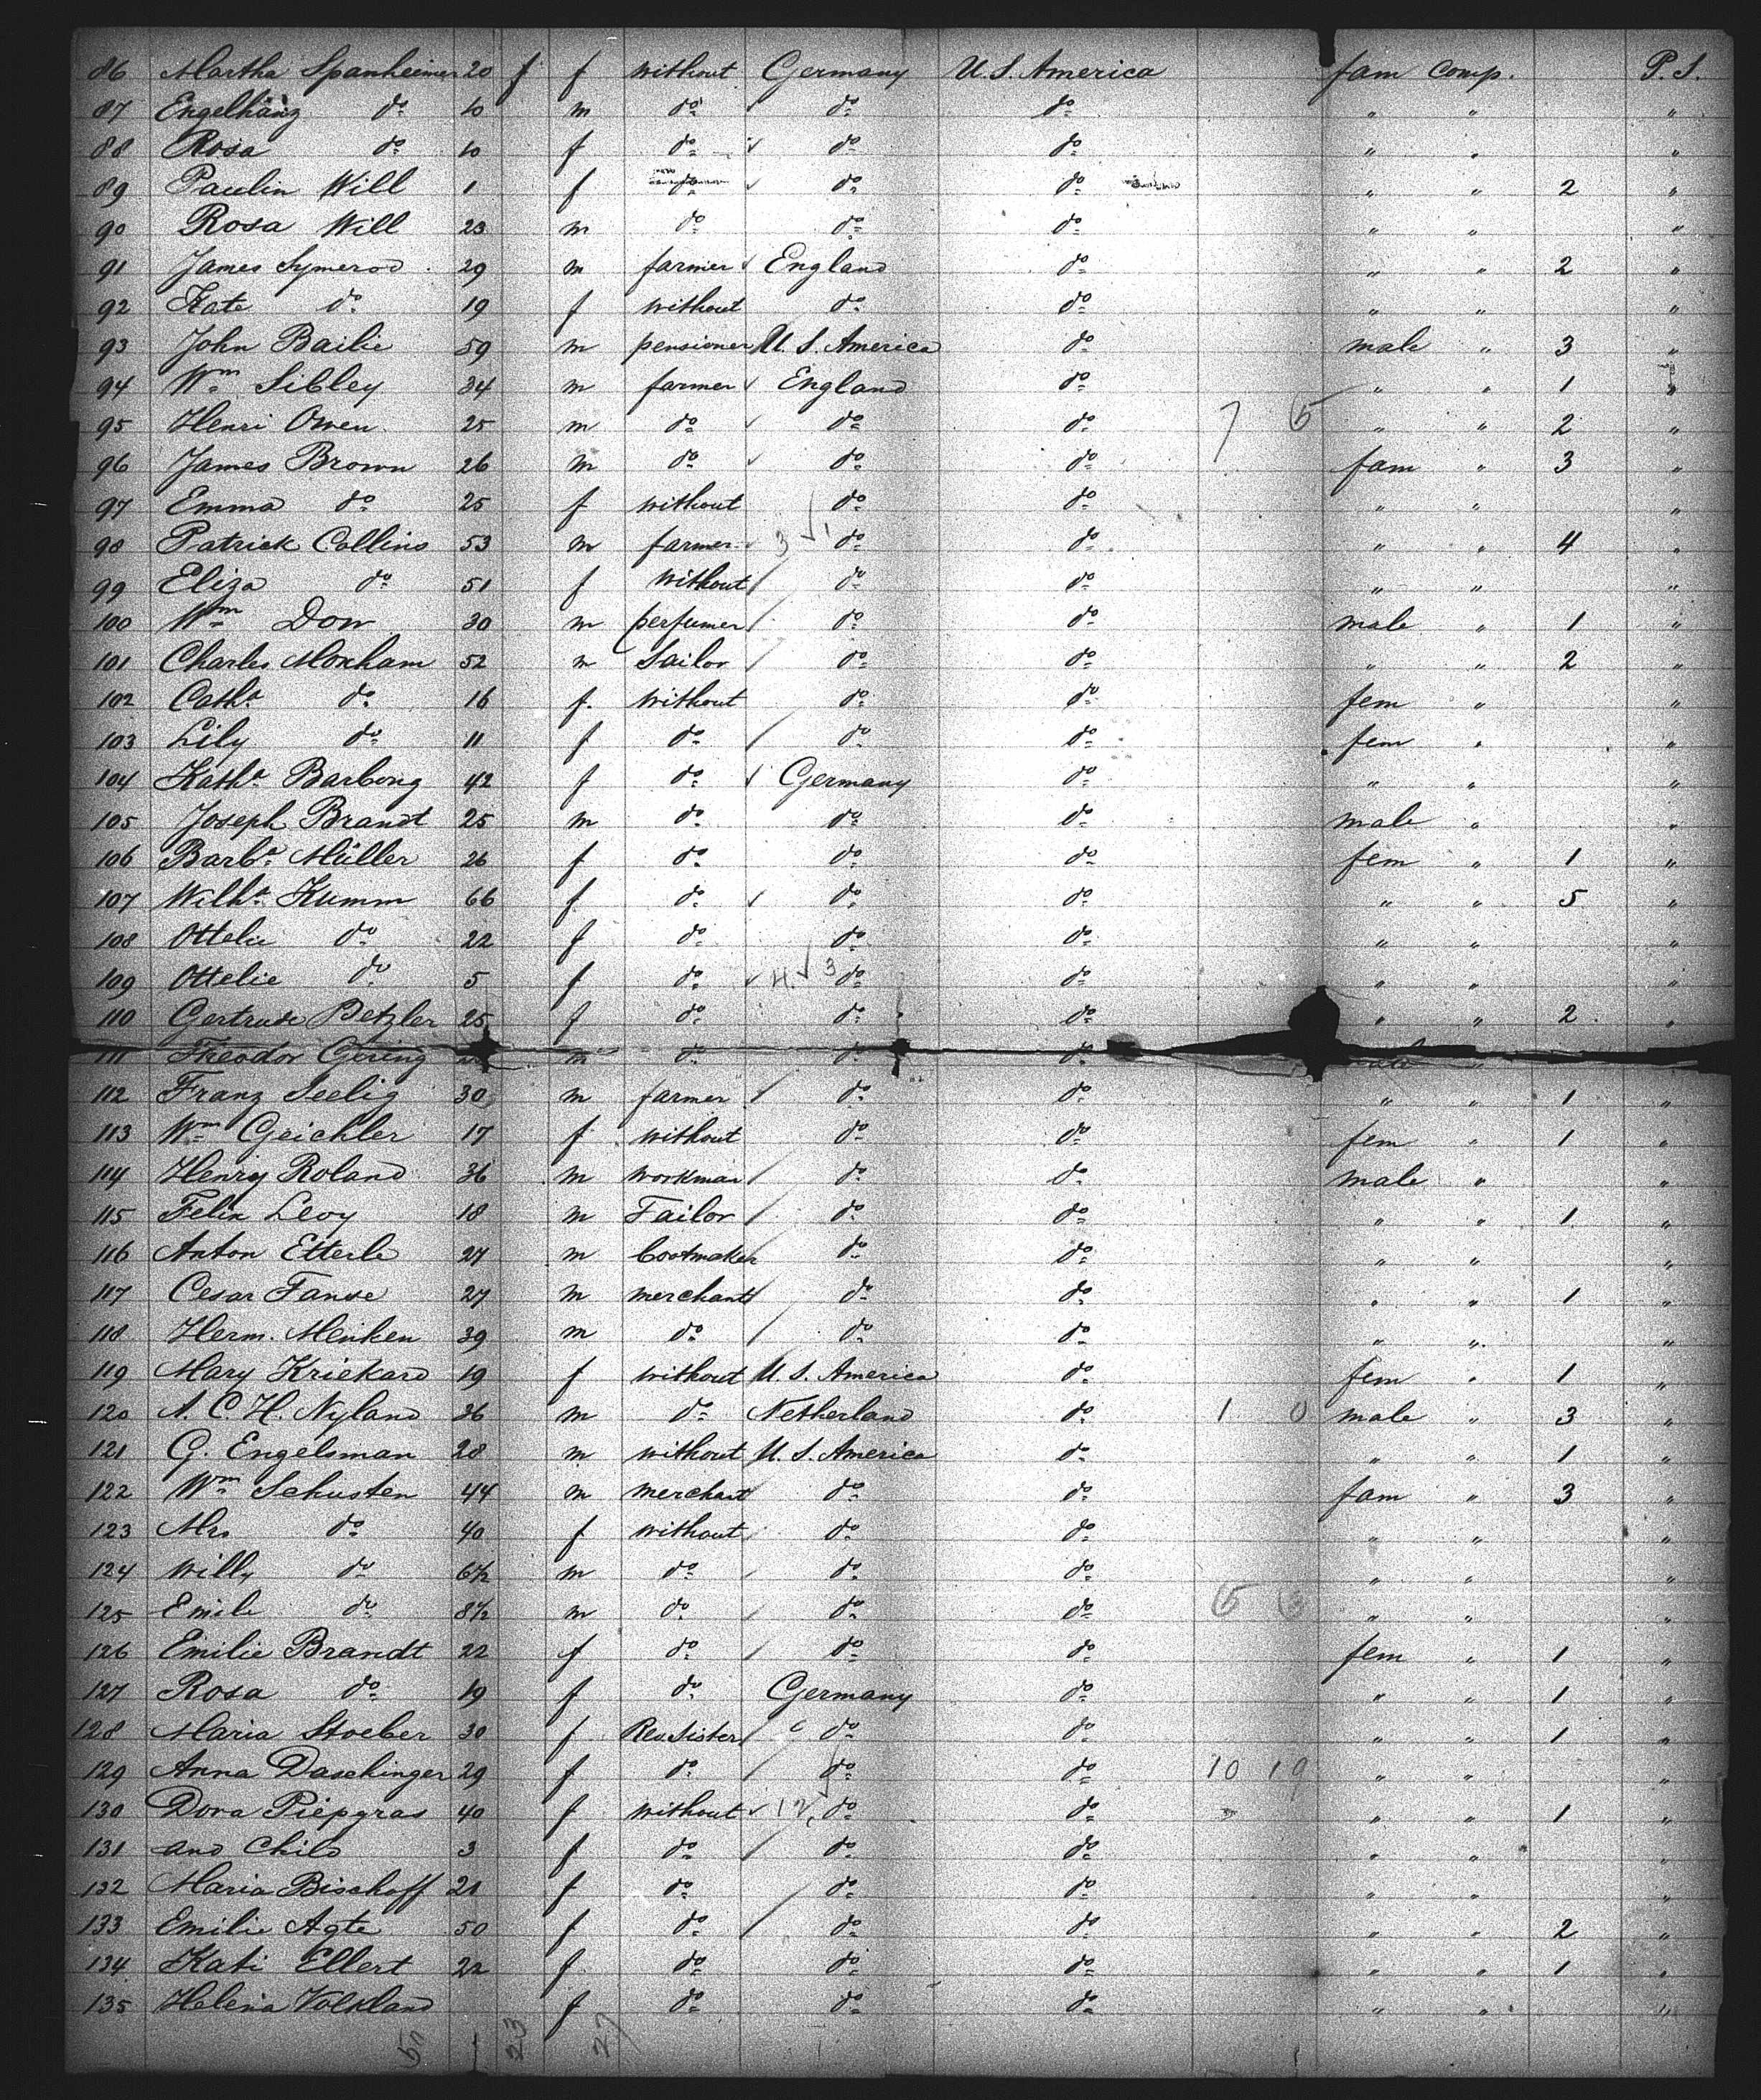 86 Martha Spanheimer 20 f f without Germany U.S. America fam comp. P.S.
87 do 10 m do do do " " "
88 Rosa do 10 f do do do " " "
89 Paulin Will 1 f do do do " " 2 "
90 Rosa Will 23 m do do do " " "
91 James Symerod 29 m farmer England do " " 2 "
92 Kate do 19 f without do do " " "
93 John Bailie 59 m pensioner U.S. America do male " 3 "
94 Wm Sibley 34 m farmer England do " " 1 "
95 Henri Owen 25 m do do do 7 6 " " 2 "
96 James Brown 26 m do do do fam " 3 "
97 Emma do 25 f without do do " " "
98 Patrick Collins 53 m farmer 3 1 do do " " 4 "
99 Eliza do 51 f without do do " " "
100 Wm Dow 30 m perfumer do do male " 1 "
101 Charles Moxham 52 m Sailor do do " " 2 "
102 Catha do 16 f without do do fem " "
103 Lily do 11 f do do do fem " "
104 Katha Barbong 42 f do Germany do " " "
105 Joseph Brandt 25 m do do do male " "
106 Barba Müller 26 f do do do fem " 1 "
107 Wilha Kumm 66 f do do do " " 5 "
108 Ottelie do 22 f do do do " " "
109 Ottelie do 5 f do 4 3 do do " " "
110 Gertrude Betzler 25 f do do do " " 2 "
111 Theodor Gering m do do do male "
112 Franz Seelig 30 m farmer do do " " 1 "
113 Wm Geichler 17 f without do do fem " 1 "
114 Henry Roland 36 m workman do do male " "
115 Felix Levy 18 m Tailor do do " " 1 "
116 Anton Etterle 27 m bootmaker do do " " "
117 Cesar Fanse 27 m merchant do do " " 1 "
118 Herm. Meinken 39 m do do do " " "
119 Mary Kriekard 19 f without U.S. America do fem " 1 "
120 A. C. H. Nyland 36 m do Netherland do 1 0 male " 3 "
121 G. Engelsman 28 m without U.S. America do " " 1 "
122 Wm Schusten 44 m merchant do do fam " 3 "
123 Mrs do 40 f without do do " " "
124 Willy do 6½ m do do do " " "
125 Emile do 8½ m do do do 5 3 " " "
126 Emilie Brandt 22 f do do do fem " 1 "
127 Rosa do 19 f do Germany do " " 1 "
128 Maria Stoeber 30 f Rev. Sister do do " " 1 "
129 Anna Daschinger 29 f do do do 10 19 " " "
130 Dora Piepgras 40 f without 12 do do " " 1 "
131 and Child 3 f do do do " " "
132 Maria Bischoff 21 f do do do " " "
133 Emilie Agte 50 f do do do " " 2 "
134 Kati Ellert 22 f do do do " " 1 "
135 Helena Volkland f do do do " " "
50 23 27